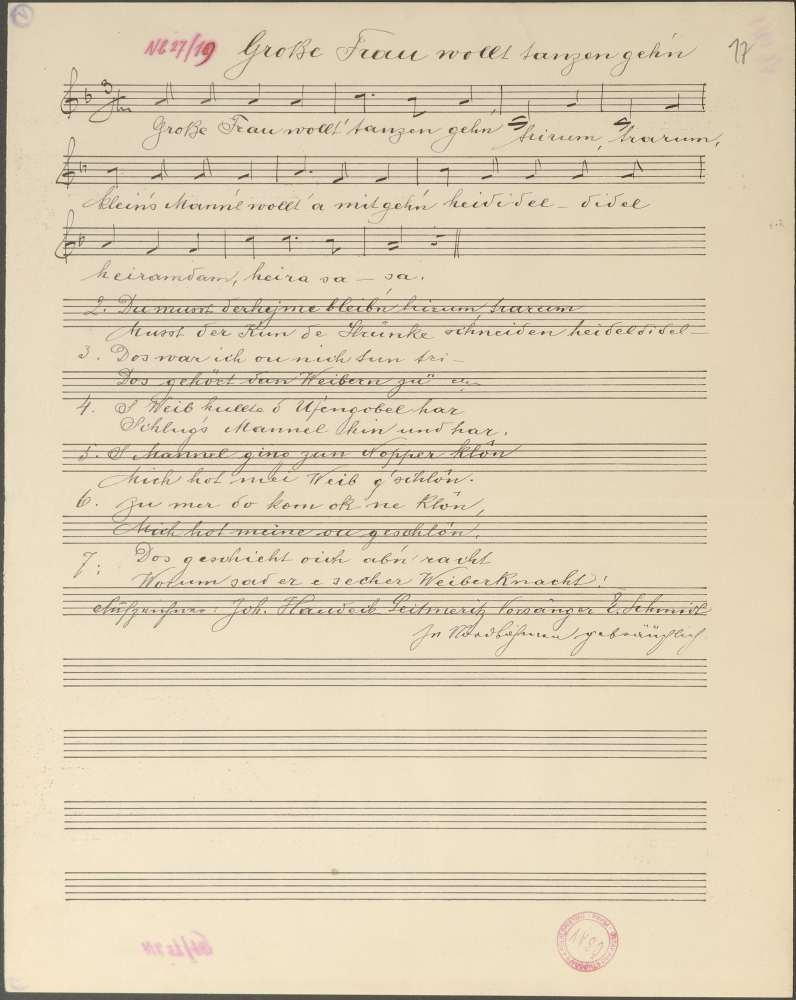 NB 27/19 Große Frau wollt tanzen geh'n 17
Große Frau wollt' tanzen gehn' trirum, trarum,
klein's Mann'l wollt a mit geh'n heididel - didel
heiramdam, heira sa - sa.
2. Du musst derhejme bleib'n trirum, trarum
Musst der Kun de Strünke schneiden heideldidel-
3. Dos war ich ou nich tun tri-
Dos gehört dan Weibern zu
4. S Weib hullte d Ufengobel har
Schlug's Mannel hin und har.
5. S Mannel ging zun Nopper klōn
Mich hot mei Weib g'schlōn.
6. Zu mer do kom ok ne Klōn,
Mich hot meine ou geschlōn.
7. Dos geschieht oich ab'n racht
Worum sad er e secher Weiberknacht!
Aufzeichner: Joh. Leitmeritz Vorsänger E. Schmidt
In Nordböhmen gebräuchlich